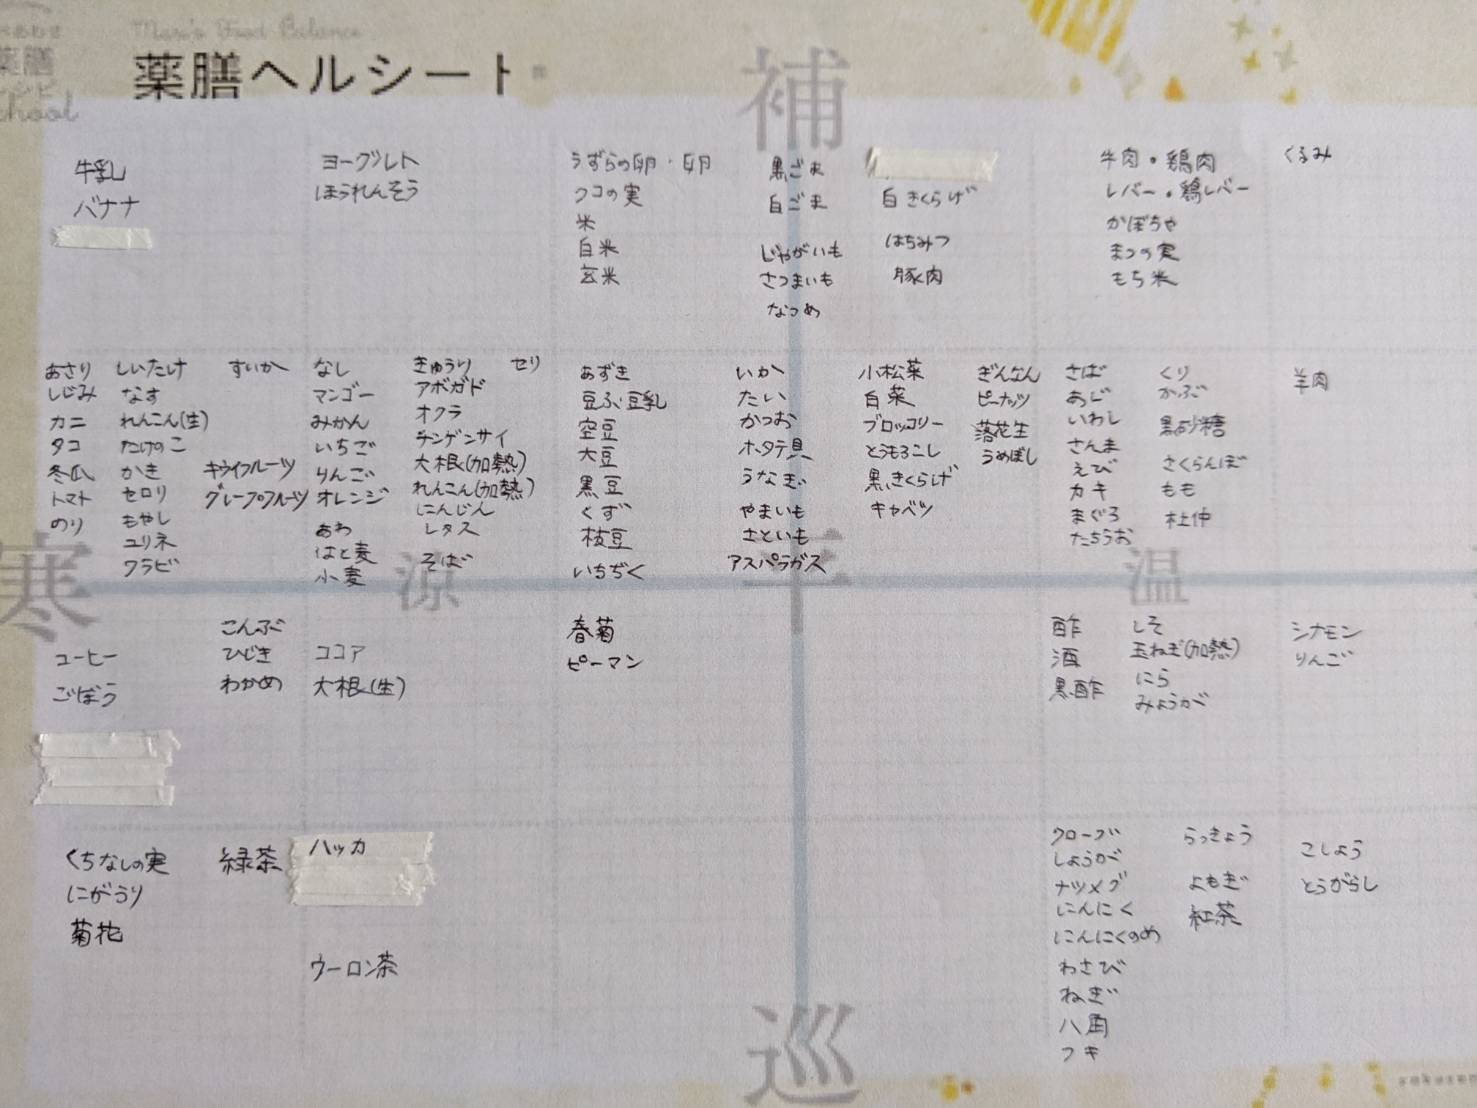 薬膳
chool
Mari's Food Balance
薬膳ヘルシート
補
牛乳
バナナ
ヨーグルト
ほうれんそう
うずらの卵・卵
クコの実
米
白米
玄米
黒ごま
白ごま
じゃがいも
さつまいも
なつめ
白きくらげ
はちみつ
豚肉
牛肉・鶏肉
レバー・鶏レバー
かぼちゃ
まつの実
もち米
くるみ
あさり
しじみ
カニ
タコ
冬瓜
トマト
のり
しいたけ
なす
れんこん(生)
たけのこ
かき
セロリ
もやし
ユリネ
ワラビ
すいか
キウイフルーツ
グレープフルーツ
なし
マンゴー
みかん
いちご
りんご
オレンジ
あわ
はと麦
小麦
きゅうり
アボガド
オクラ
チンゲンサイ
大根(加熱)
れんこん(加熱)
にんじん
レタス
そば
セリ
あずき
豆ふ・豆乳
空豆
大豆
黒豆
くず
枝豆
いちぢく
いか
たい
かつお
ホタテ貝
うなぎ
やまいも
さといも
アスパラガス
小松菜
白菜
ブロッコリー
とうもろこし
黒きくらげ
キャベツ
ぎんなん
ピーナッツ
落花生
うめぼし
さば
あじ
いわし
さんま
えび
カキ
まぐろ
たちうお
くり
かぶ
黒砂糖
さくらんぼ
もも
杜仲
羊肉
寒
涼
平
温
コーヒー
ごぼう
こんぶ
ひじき
わかめ
ココア
大根(生)
春菊
ピーマン
酢
酒
黒酢
しそ
玉ねぎ(加熱)
にら
みょうが
シナモン
りんご
くちなしの実
にがうり
菊花
緑茶
ハッカ
ウーロン茶
クローブ
しょうが
ナツメグ
にんにく
にんにくのめ
わさび
ねぎ
八角
フキ
らっきょう
よもぎ
紅茶
こしょう
とうがらし
巡